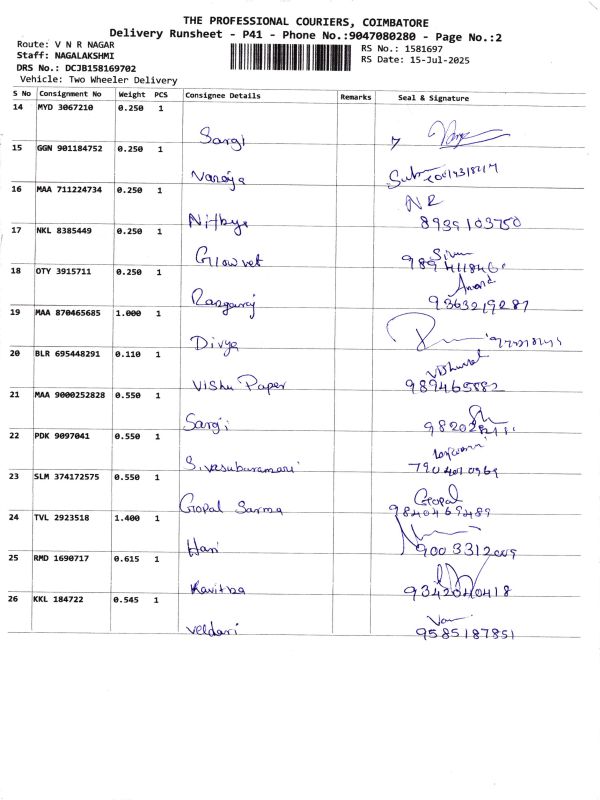 THE PROFESSIONAL COURIERS, COIMBATORE
Delivery Runsheet - P41 - Phone No.:9047080280 - Page No.:2
Route: V N R NAGAR
Staff: NAGALAKSHMI
DRS No.: DCJB158169702
Vehicle: Two Wheeler Delivery
RS No.: 1581697
RS Date: 15-Jul-2025
S No Consignment No Weight PCS Consignee Details Remarks Seal & Signature
14 MYD 3067210 0.250 1
Sargi
15 GGN 901184752 0.250 1
16 MAA 711224734 0.250 1
NR
Nithya 8939103750
17 NKL 8385449 0.250 1
Glowvet
18 OTY 3915711 0.250 1
Anand
9363219287
19 MAA 870465685 1.000 1
Divya
20 BLR 695448291 0.110 1
Vishu Paper
21 MAA 9000252828 0.550 1
Sargi
22 PDK 9097041 0.550 1
7904010969
23 SLM 374172575 0.550 1
Gopal
Gopal Sarma 9840469489
24 TVL 2923518 1.400 1
Hari
25 RMD 1690717 0.615 1
Kavitha 9342040418
26 KKL 184722 0.545 1
Veldari 9585187851